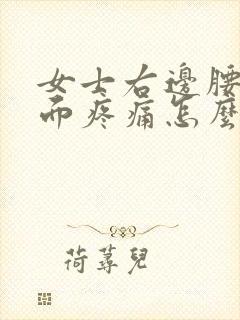 女士右邊腰
而疼痛怎麼
荷蕁兒